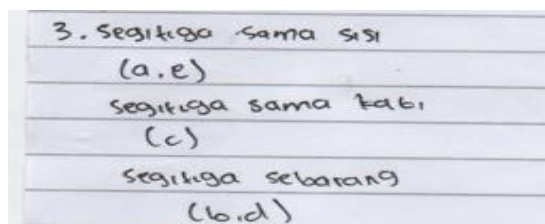 3. segitiga sama sisi
(a.e)
segitiga sama kaki
(c)
segitiga sebarang
(b.d)